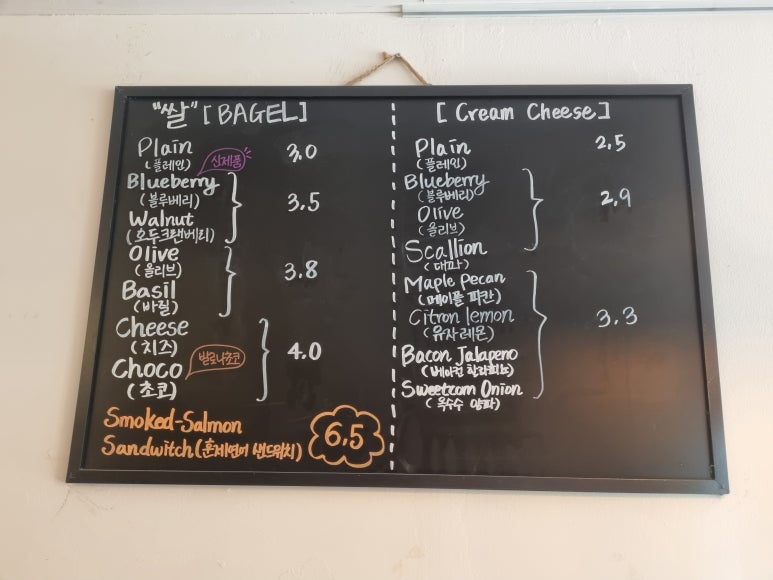 "쌀" [BAGEL]
Plain 3.0
(플레인) 신제품
Blueberry
(블루베리) 3.5
Walnut
(호두크랜베리)
Olive
(올리브) 3.8
Basil
(바질)
Cheese
(치즈) 4.0
Choco 발로나초코
(초코)
Smoked-Salmon
Sandwitch (훈제연어 샌드위치) 6.5
[Cream Cheese]
Plain 2.5
(플레인)
Blueberry
(블루베리) 2.9
Olive
(올리브)
Scallion
(대파)
Maple Pecan
(메이플 피칸)
Citron lemon 3.3
(유자레몬)
Bacon Jalapeno
(베이컨 할라피뇨)
Sweetcorn Onion
(옥수수 양파)